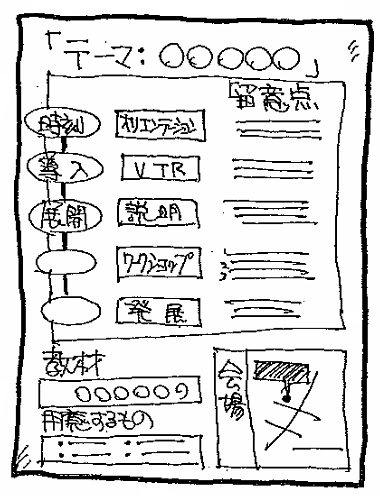 「テーマ:○○○○○」
留意点
時刻 オリエンテーション
導入 VTR
展開 説明
ワークショップ
1
2
3
発展
教材
○○○○○○
用意するもの
会場